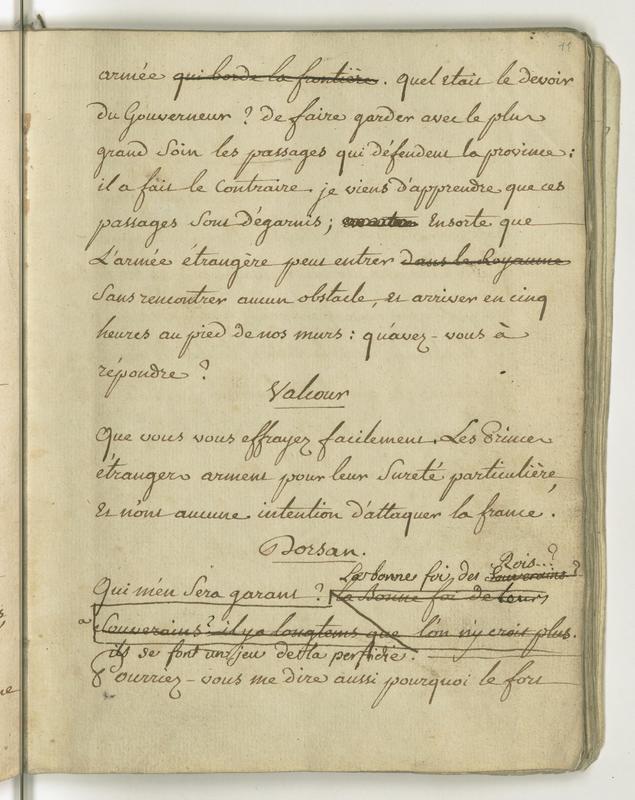 11
armée qui borde la frontière. quel Etait le devoir
du Gouverneur ? de faire garder avec le plus
grand Soin les passages qui défendent la province :
il a fait le Contraire. je viens d'apprendre que ces
passages Sont dégarnis ; Ensorte que
L'armée étrangère peut entrer dans le Royaume
Sans rencontrer aucun obstacle, et arriver en cinq
heures au pied de nos murs : qu'avez-vous à
répondre ?
Valcour
Que vous vous effrayez facilement. Les Princes
étrangers arment pour leur Sureté particulière,
Et n'ont aucune intention d'attaquer la france.
Dorsan.
Rois..?
La bonne foi des Souverains ?
Qui m'en Sera garant ? la Bonne foi de leurs
Souverains ? il y a longtems que l'on n'y croit plus.
ils se font un jeu de la perfidie.
Pourriez-vous me dire aussi pourquoi le fort